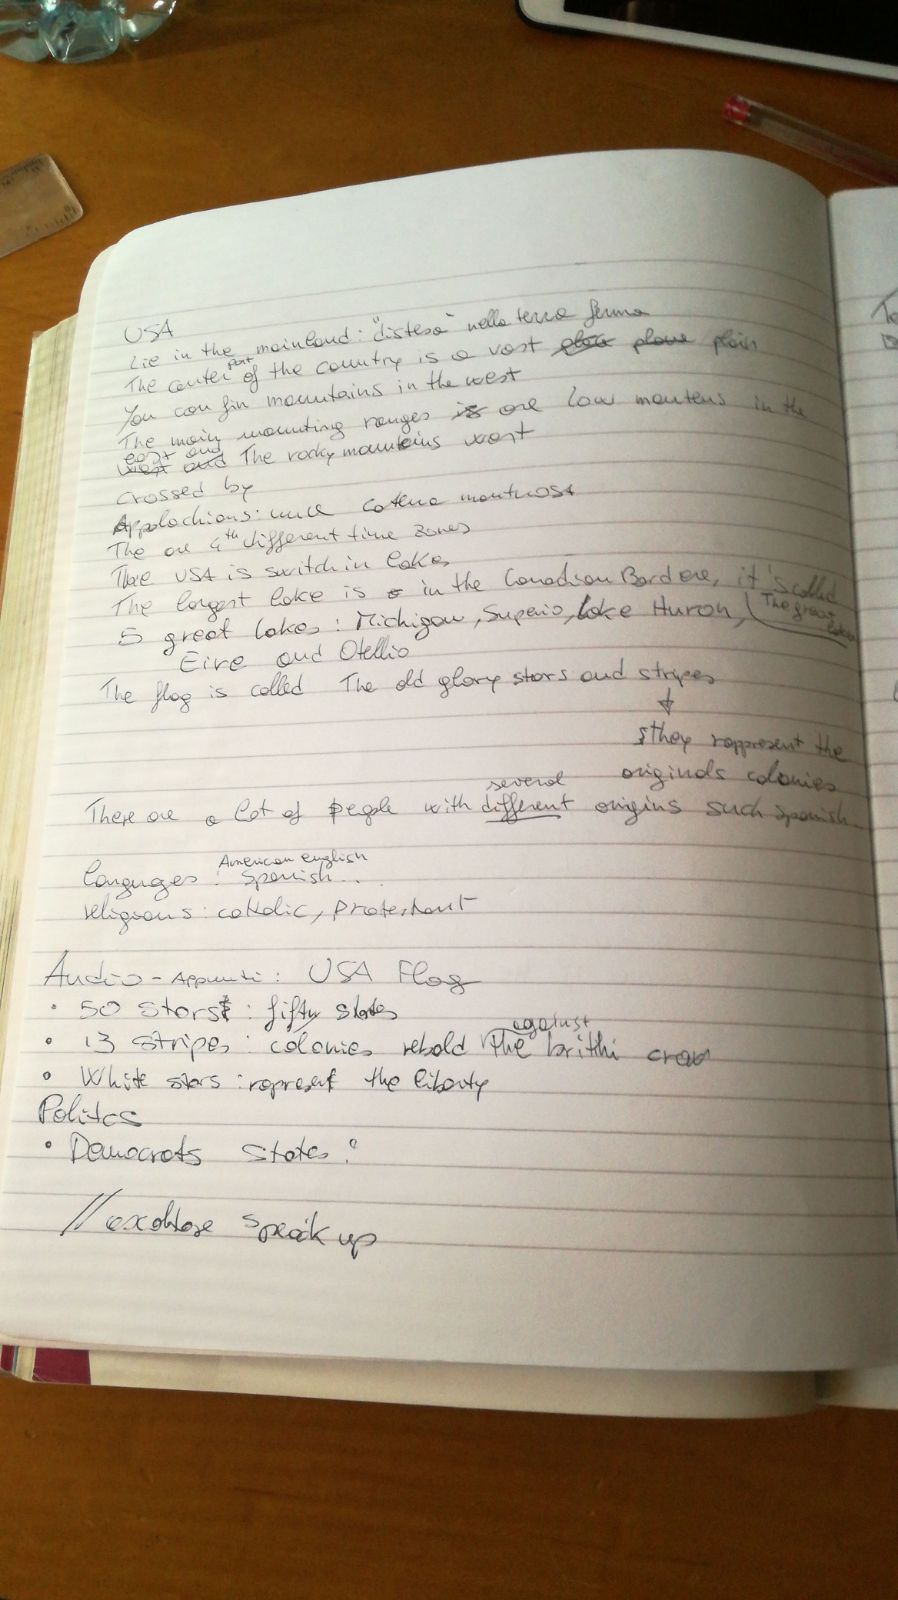 USA
Lie in the mainland: "distesa" nella terra ferma
The center part of the country is a vast plane plain
You can fin mountains in the west
The main mounting ranges is are low montens in the
east and
west and The rocky mountains west
crossed by
Appalachians: una catena montuosa
The are 4th different time zones
Thae USA is switch in lakes
The largest lake is in the Canadian Bordere, it's called
The great lakes
5 great lakes: Michigan, Superio, Lake Huron,
Eire and Otellio
The flag is called The old glory stars and stripes
they rappresent the
originals colonies
several
There are a lot of people with different origins such spanish
American english
languages: Spanish...
religions: catholic, protestant
Audio - Appunti: USA Flag
• 50 Stars: fifty states
against
• 13 Stripes: colonies rebold the brithi
• White stars: represent the liberty
Politcs
• Democrats states:
// speak up